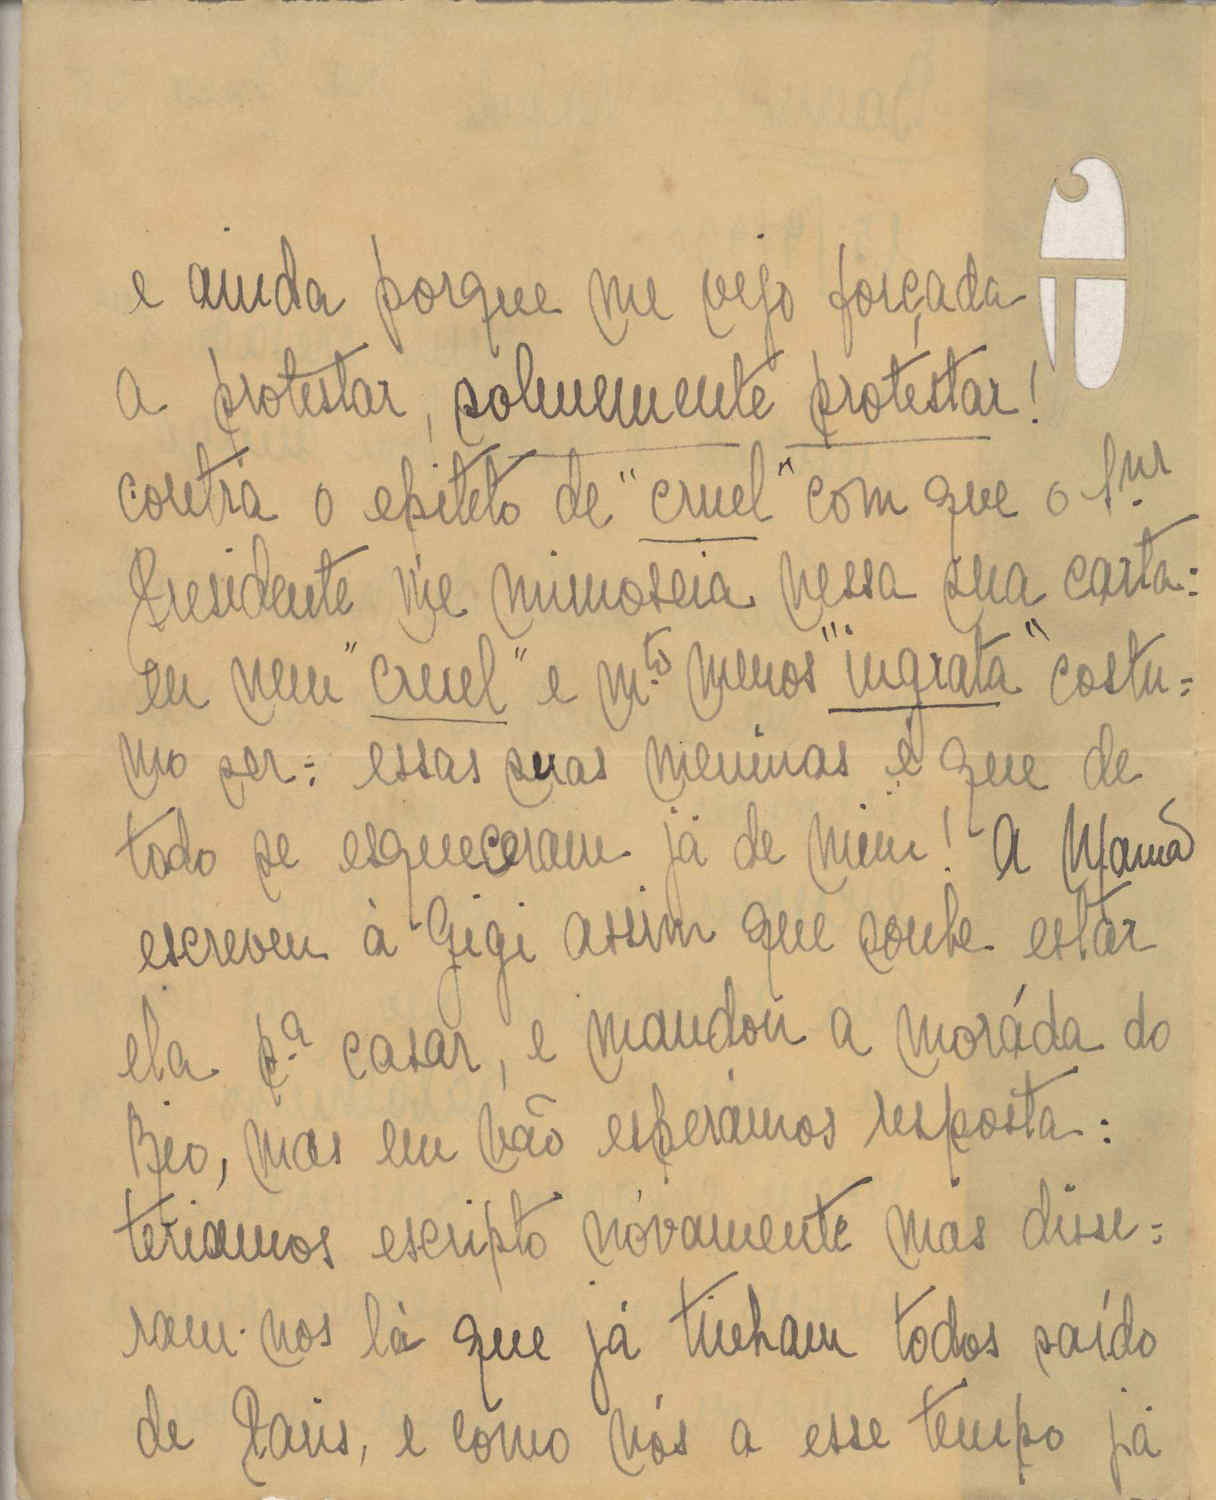 e ainda porque me vejo forçada
a protestar, solmemente protestar!
contra o epiteto de "cruel" com que o Snr
Presidente me mimoseia nessa sua carta:
eu nem "cruel" e mto menos "ingrata" costu=
mo ser: essas suas meninas é que de
todo se esqueceram já de mim! A Mamã
escreveu à Gigi assim que soube estar
ela pa casar, e mandou a moráda do
Bjo, mas em vão esperámos resposta:
teriamos escripto nóvamente mas disse=
ram-nos lá que já tinham todos saído
de Paris, e como nós a esse tempo já